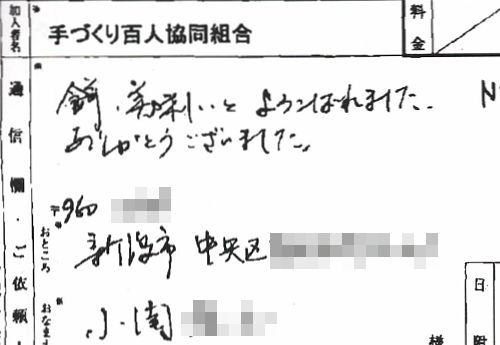 加入者名
手づくり百人協同組合
料金
通信欄・ご依頼
美味しいと よろこばれました。
ありがとうございました。
〒
おところ
新潟市 中央区
おなま
小
様
日附